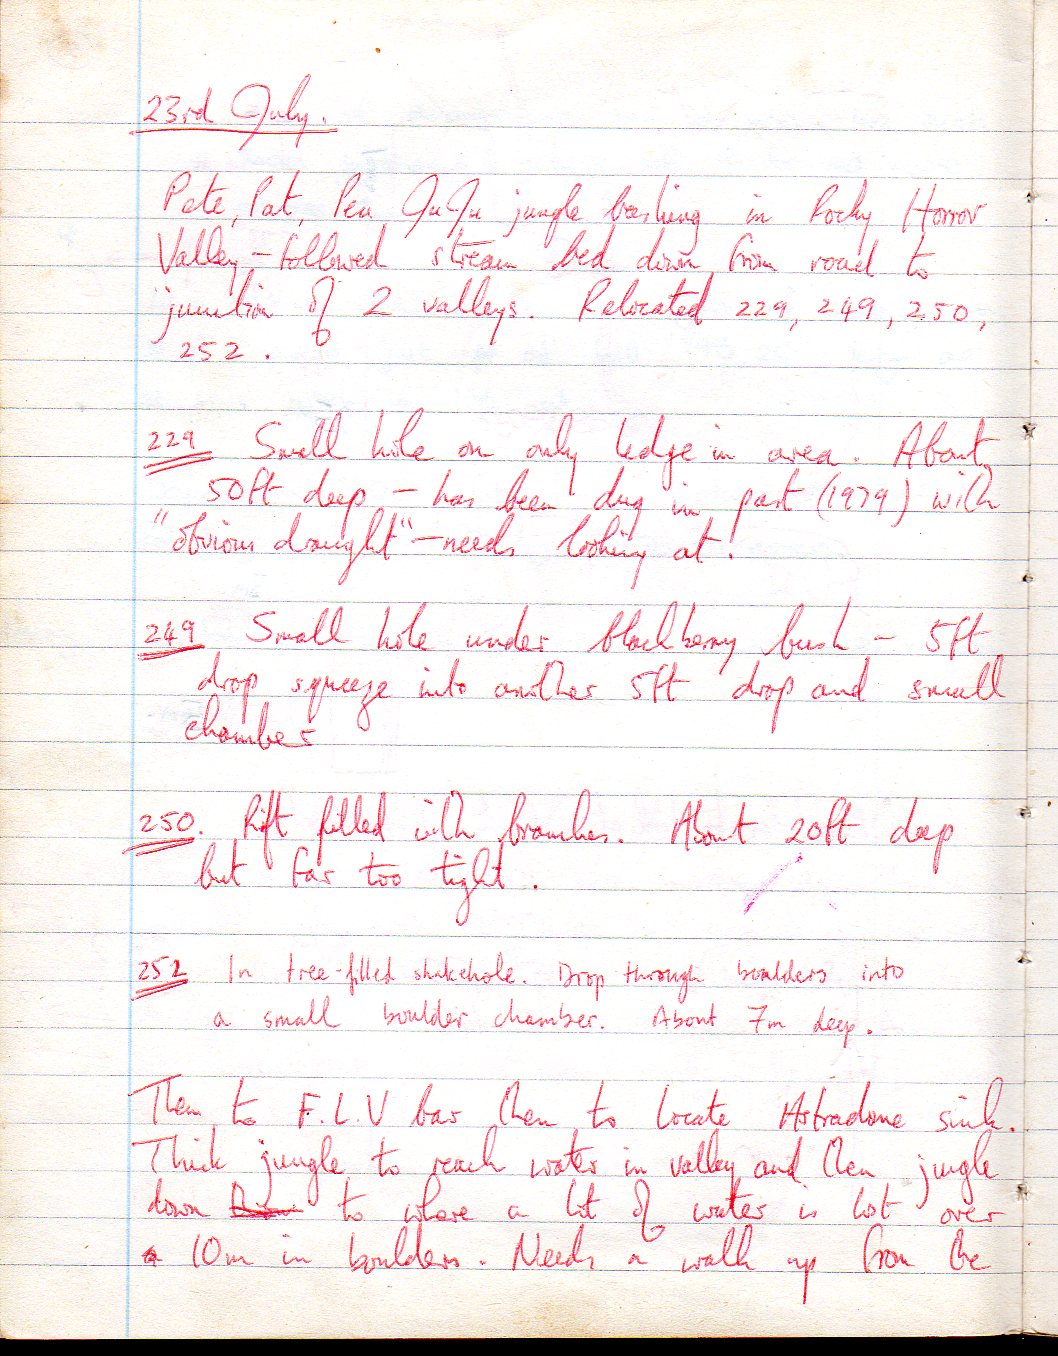 23rd July.
Pete, Pat, Pen JuJu jungle bashing in Rocky Horror
Valley - followed stream bed down from road to
junction of 2 valleys. Relocated 229, 249, 250,
252.
229 Small hole on only ledge in area. About
50ft deep - has been dug in past (1979) with
"obvious draught" - needs looking at!
249 Small hole under blackberry bush - 5ft
drop squeeze into another 5ft drop and small
chamber
250. Rift filled with branches. About 20ft deep
but far too tight.
252 In tree-filled shakehole. Drop through boulders into
a small boulder chamber. About 7m deep.
Then to F.L.V bar then to locate Astradome sink.
Thick jungle to reach water in valley and then jungle
down to where a lot of water is lost over
10m in boulders. Needs a walk up from the